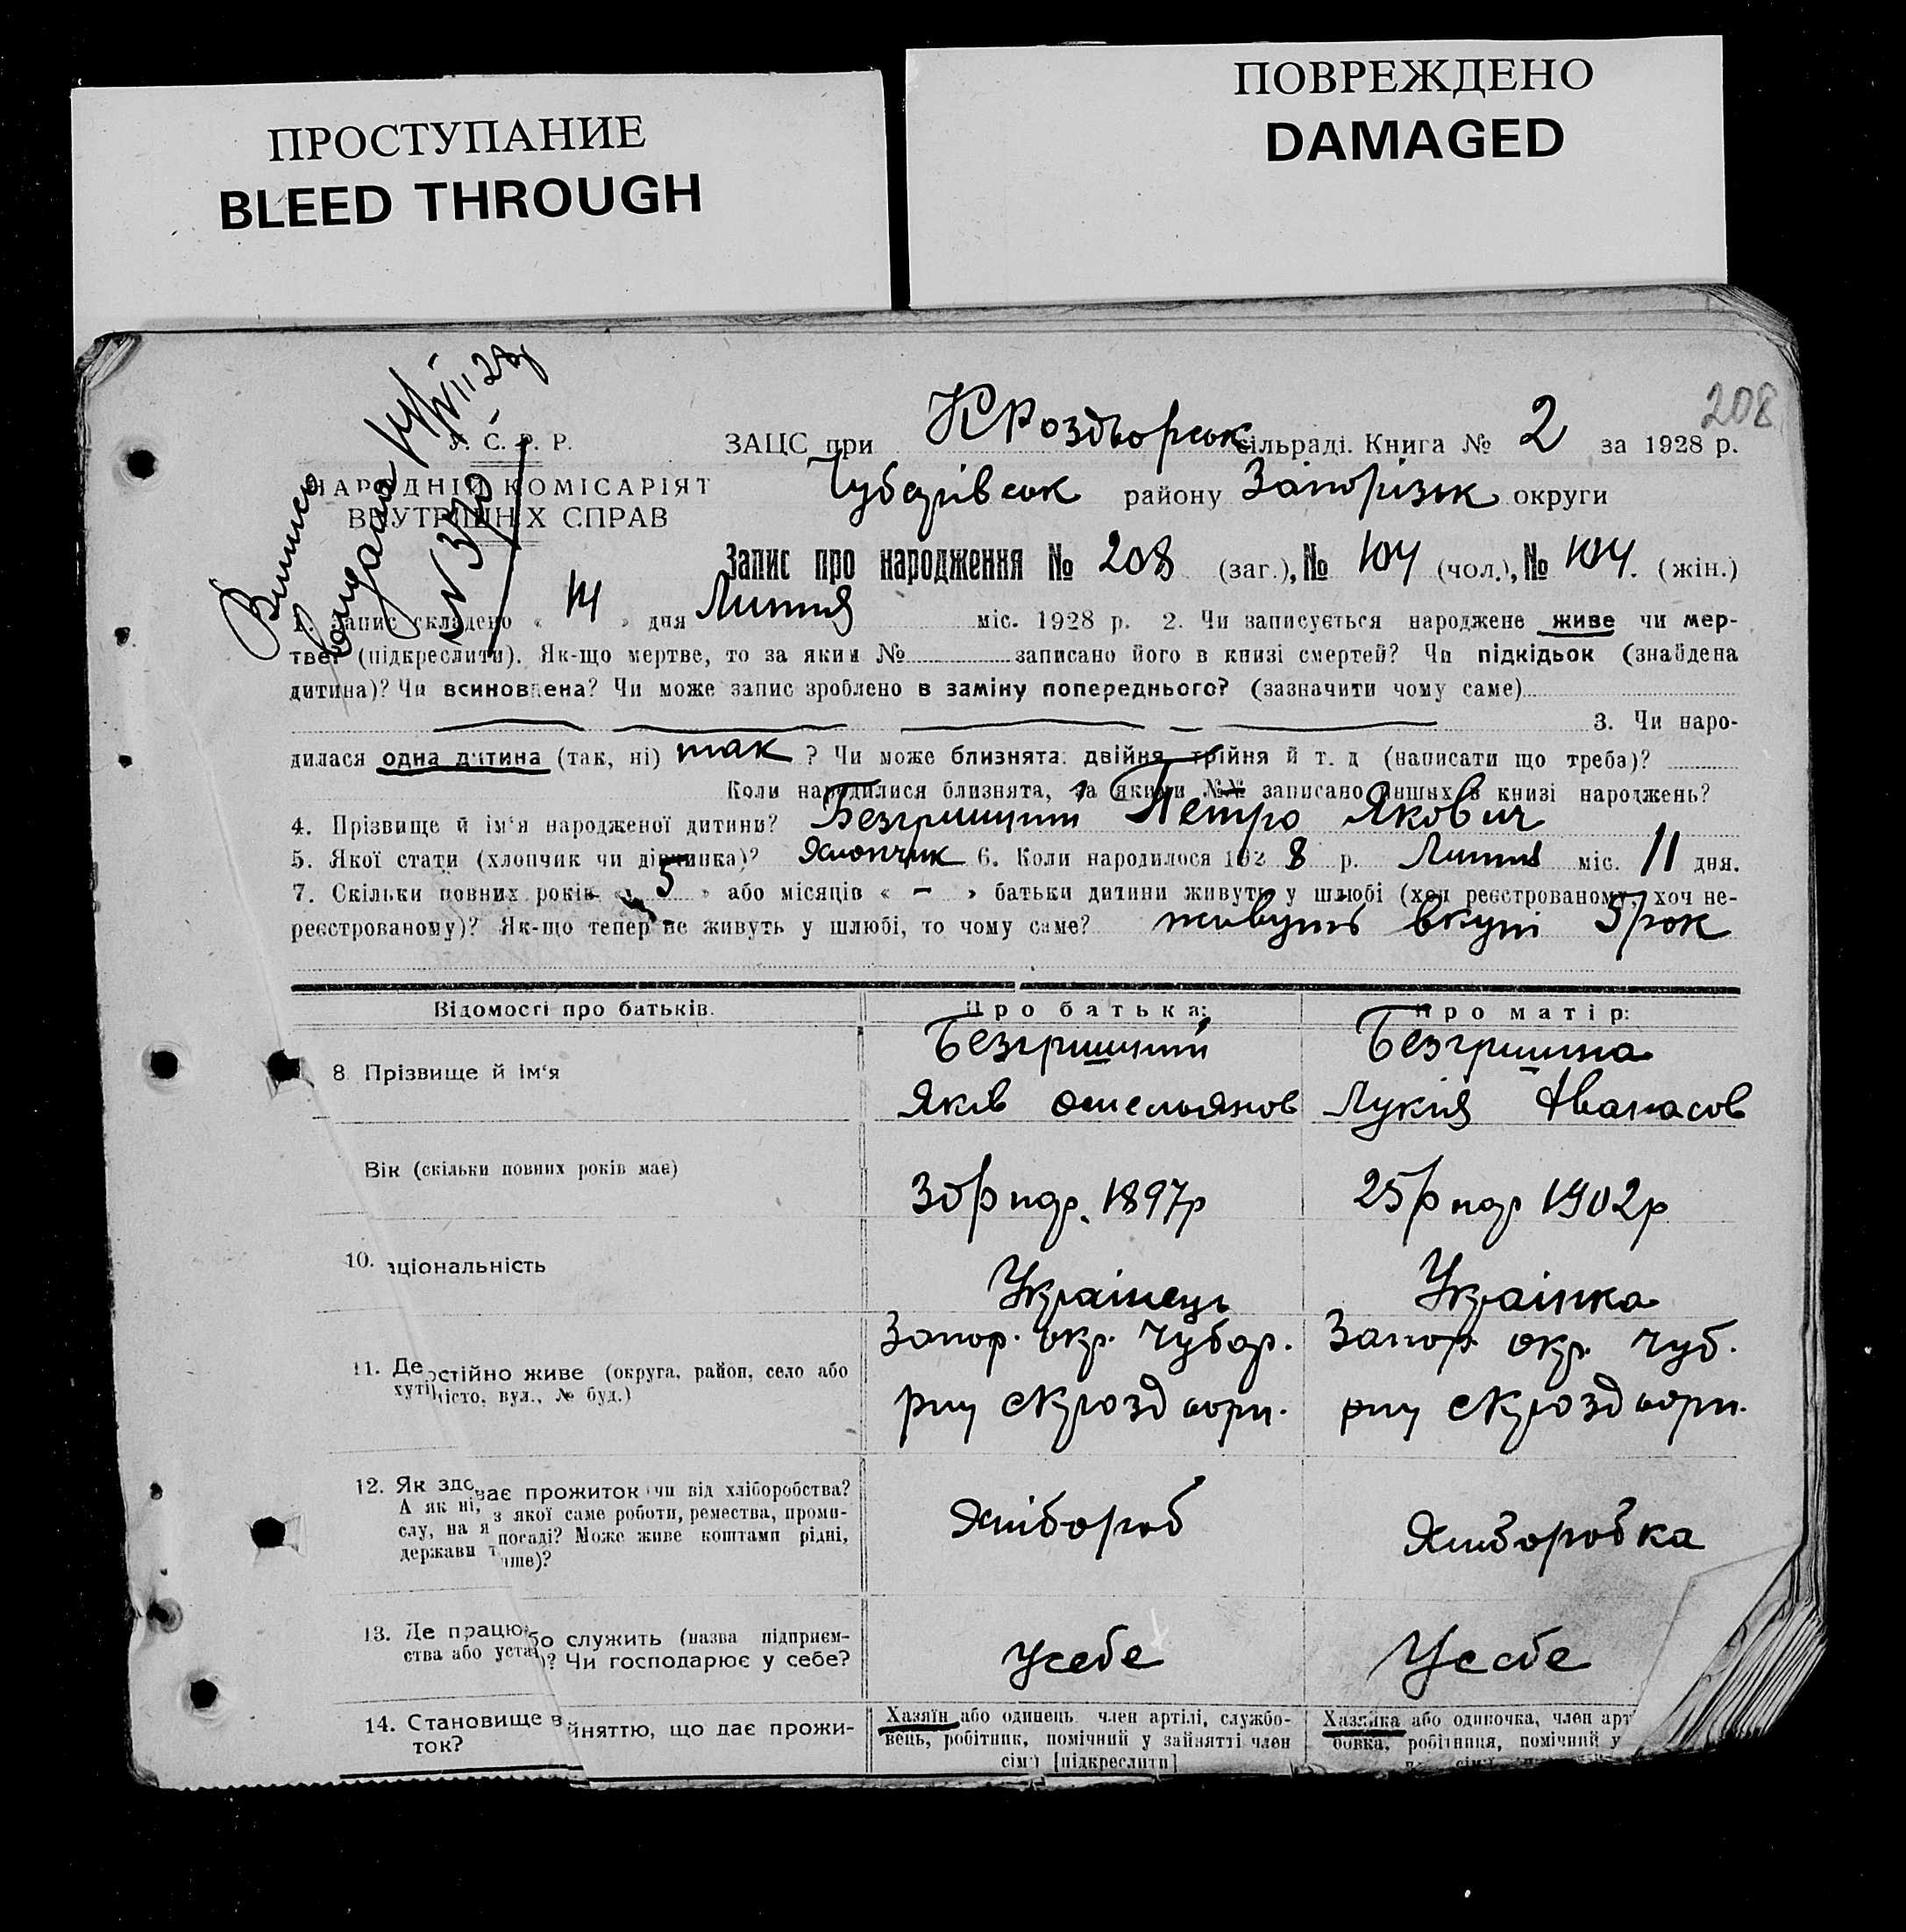 ПРОСТУПАНИЕ
BLEED THROUGH
ПОВРЕЖДЕНО
DAMAGED
208
С. Р. Р.
НАРОДНІЙ КОМІСАРІЯТ
ВНУТРІШНІХ СПРАВ
Випись
видана
N 370
ЗАЦС при К Роздорськ сільраді. Книга № 2 за 1928 р.
Чубарівськ району Запорізьк округи
Запис про народження № 208 (заг.), № 104 (чол.), № 104. (жін.)
1. Запис складено « 14 » дня Лютия міс. 1928 р. 2. Чи записується народжене живе чи мер-
тве? (підкреслити). Як-що мертве, то за яким № записано його в книзі смертей? Чи підкідьок (знайдена
дитина)? Чи всиновлена? Чи може запис зроблено в заміну попереднього? (зазначити чому саме)
3. Чи наро-
дилася одна дитина (так, ні) так ? Чи може близнята: двійня, трійня й т. д (написати що треба)?
Коли народилися близнята, за якими №№ записано инших в книзі народжень?
4. Прізвище й ім'я народженої дитини? Безгришний Петро Якович
5. Якої стати (хлопчик чи дівчинка)? Хлопчик 6. Коли народилося 1928 р. Лютия міс. 11 дня.
7. Скільки повних років « 5 » або місяців « – » батьки дитини живуть у шлюбі (хоч реєстрованому, хоч не-
реєстрованому)? Як-що тепер не живуть у шлюбі, то чому саме? живуть вкупі 5 рок
Відомості про батьків. Про батька: Про матір:
8 Прізвище й ім'я
Безгришний Безгришна
Яків Омельянов Лукія Аванасов
Вік (скільки повних років має)
30 р нар. 1897р 25 р нар 1902р
10. аціональність
Українець Українка
11. Де остійно живе (округа, район, село або
хуті місто, вул., № буд.)
Запор. окр. Чубар. Запор окр. Чуб.
рну с Кроздори. рну с Кроздори.
12. Як здо ває прожиток чи від хліборобства?
А як ні, з якої саме роботи, ремества, проми-
слу, на я посаді? Може живе коштами рідні,
держави т нше)?
Хлібороб Хліборобка
13. Де працю бо служить (назва підприєм-
ства або устан )? Чи господарює у себе?
усебе Усебе
14. Становище в йняттю, що дає прожи-
ток?
Хазяїн або одинець, член артілі, службо-
вець, робітник, помічний у зайнятті член
сім'ї [підкреслити]
Хазяйка або одиночка, член арт
бовка, робітниця, помічний у